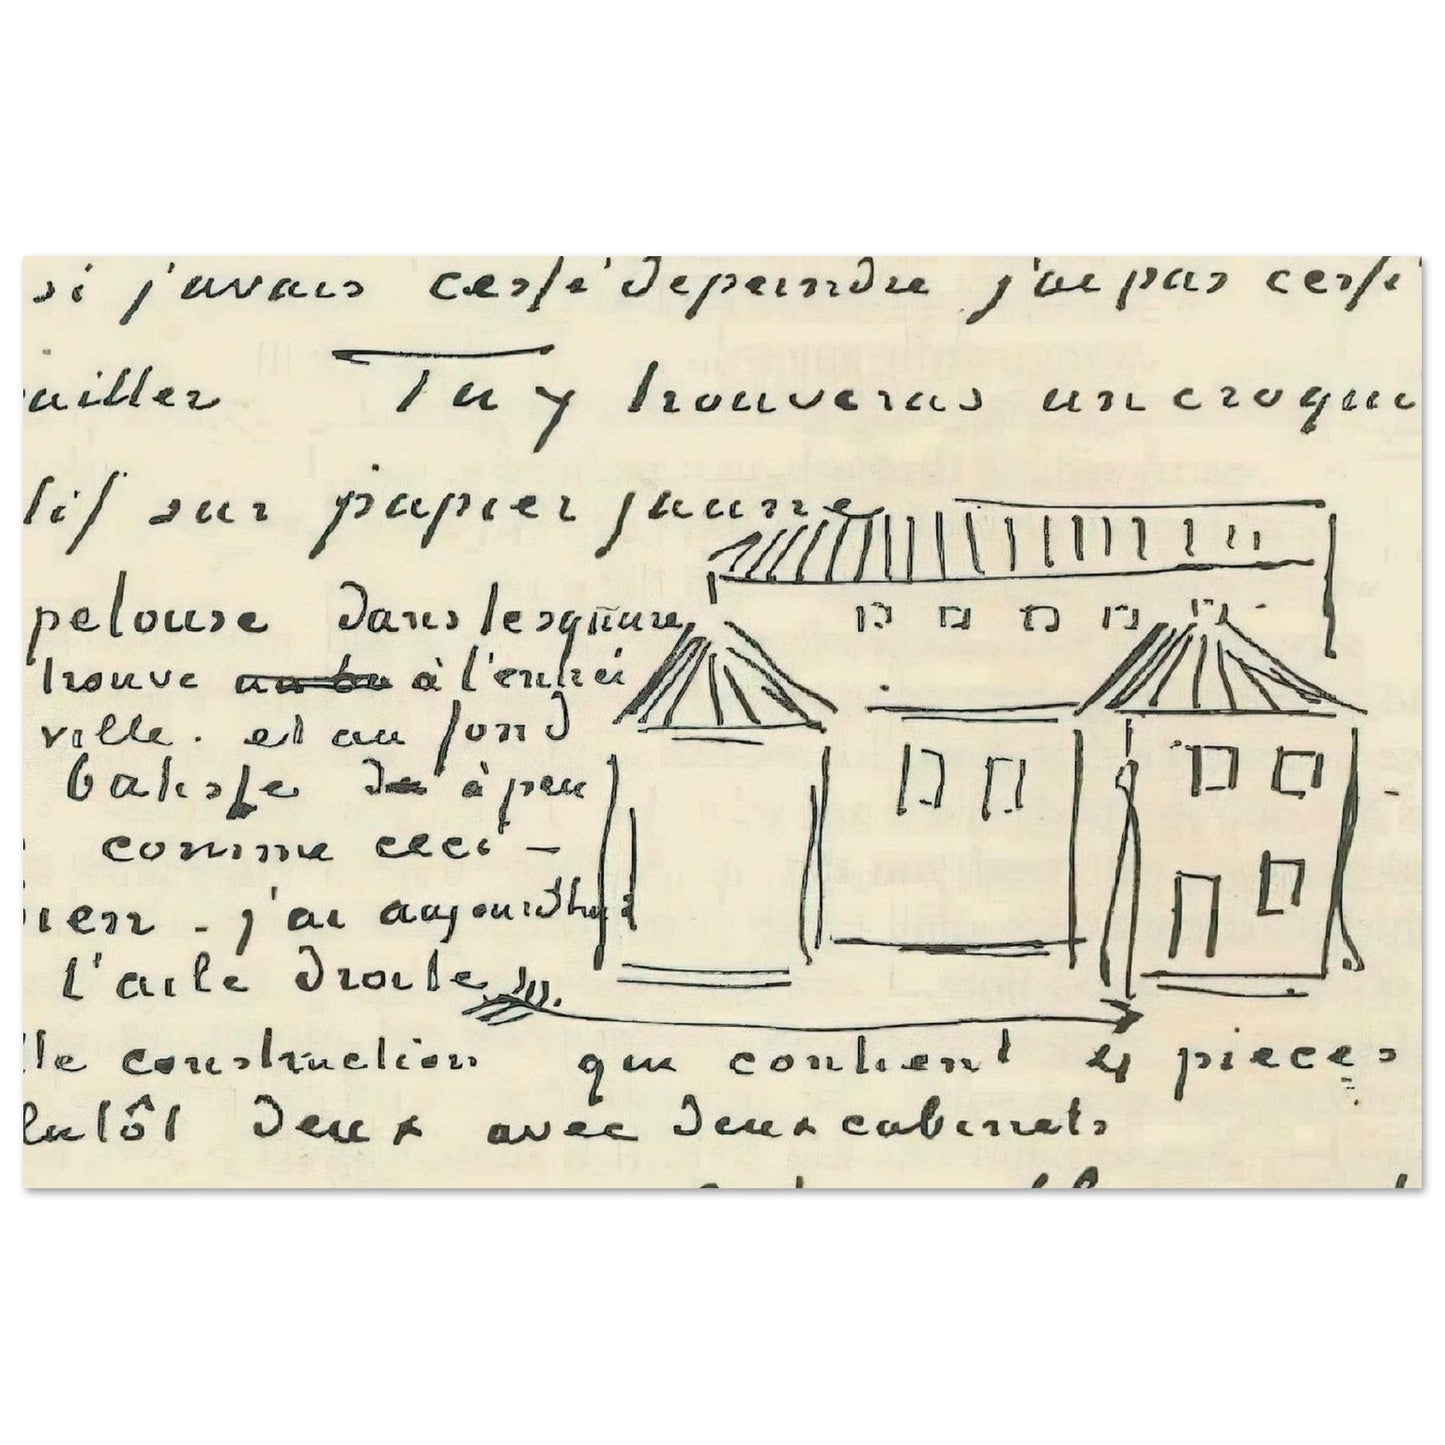 si j'avais cessé de peindre j'ai pas cessé
ailler Tu y trouveras un croqui
tif sur papier jaune
pelouse dans le square
trouve à l'entré
ville. et au fond
batisse à peu
comme ceci –
ien . j'ai aujourdhui
l'aile droite
te construction qui contient 4 pieces
lutôt deux avec deux cabinets